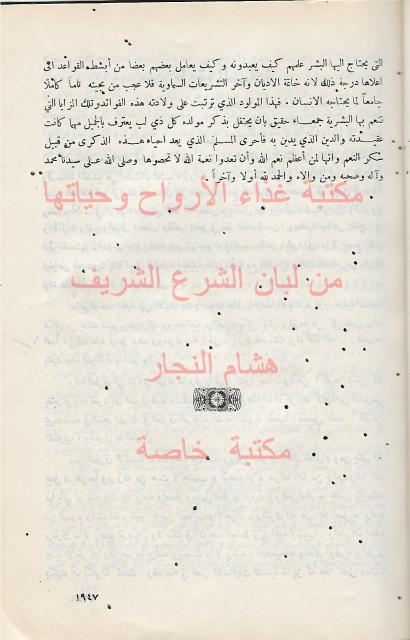 التي يحتاج اليها البشر علمهم كيف يعبدونه وكيف يعامل بعضهم بعضا من أبسط القواعد الى
اعلاها درجة ذلك لانه خاتمة الاديان وآخر التشريعات السماوية فلا عجب من مجيئه تاماً كاملا
جامعاً لما يحتاجه الانسان . فهذا المولود الذي ترتبت على ولادته هذه الفوائد وتلك المزايا التي
تنعم بها البشرية جمعاء حقيق بان يحتفل بذكر مولده كل ذي لب يعترف بالجميل مهما كانت
عقيدته والدين الذي يدين به فأحرى المسلم الذي يعد احياء هذه الذكرى من قبيل
شكر النعم وانها لمن أعظم نعم الله وأن تعدوا نعمة الله لا تحصوها وصلى الله على سيدنا محمد
وآله وصحبه ومن والاه والحمد لله أولا وآخراً
مكتبة غذاء الأرواح وحياتها
من لبان الشرع الشريف
هشام النجار
مكتبة خاصة
١٩٤٧